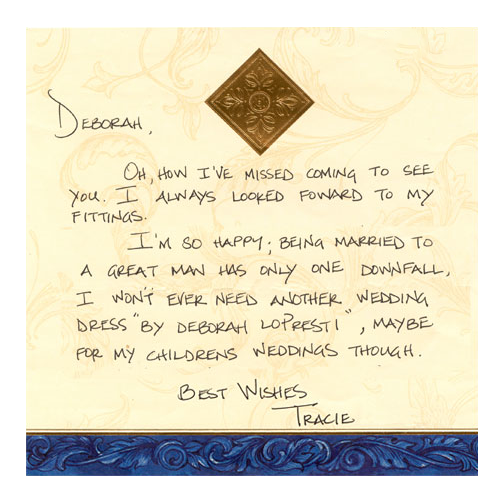 DEBORAH,
OH, HOW I'VE MISSED COMING TO SEE
YOU. I ALWAYS LOOKED FOWARD TO MY
FITTINGS.
I'M SO HAPPY; BEING MARRIED TO
A GREAT MAN HAS ONLY ONE DOWNFALL,
I WON'T EVER NEED ANOTHER WEDDING
DRESS "BY DEBORAH LOPRESTI", MAYBE
FOR MY CHILDRENS WEDDINGS THOUGH.
BEST WISHES
TRACIE